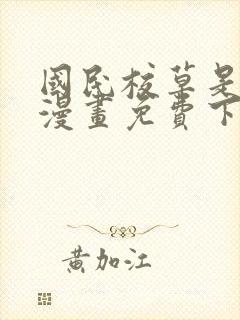 國民校草是
漫畫免費下
黃加江